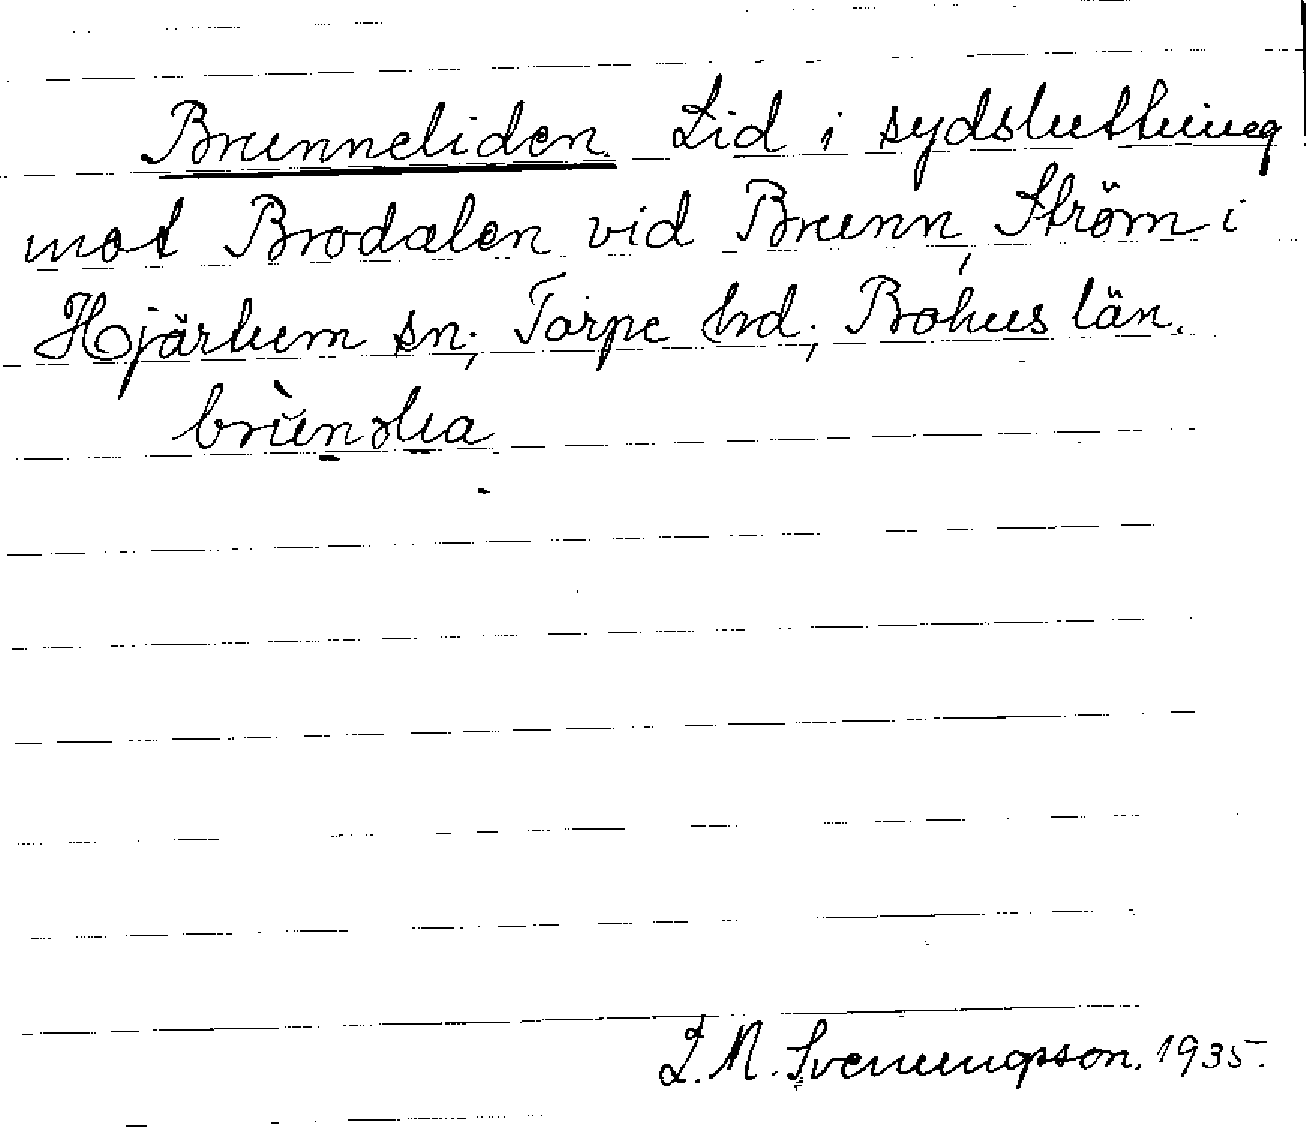 Brunneliden. Lid i sydsluttning
mot Brodalen vid Brunn, Ström i
Hjärtum sn; Torpe hd; Bohus län.
L. M. Svenungsson. 1935.